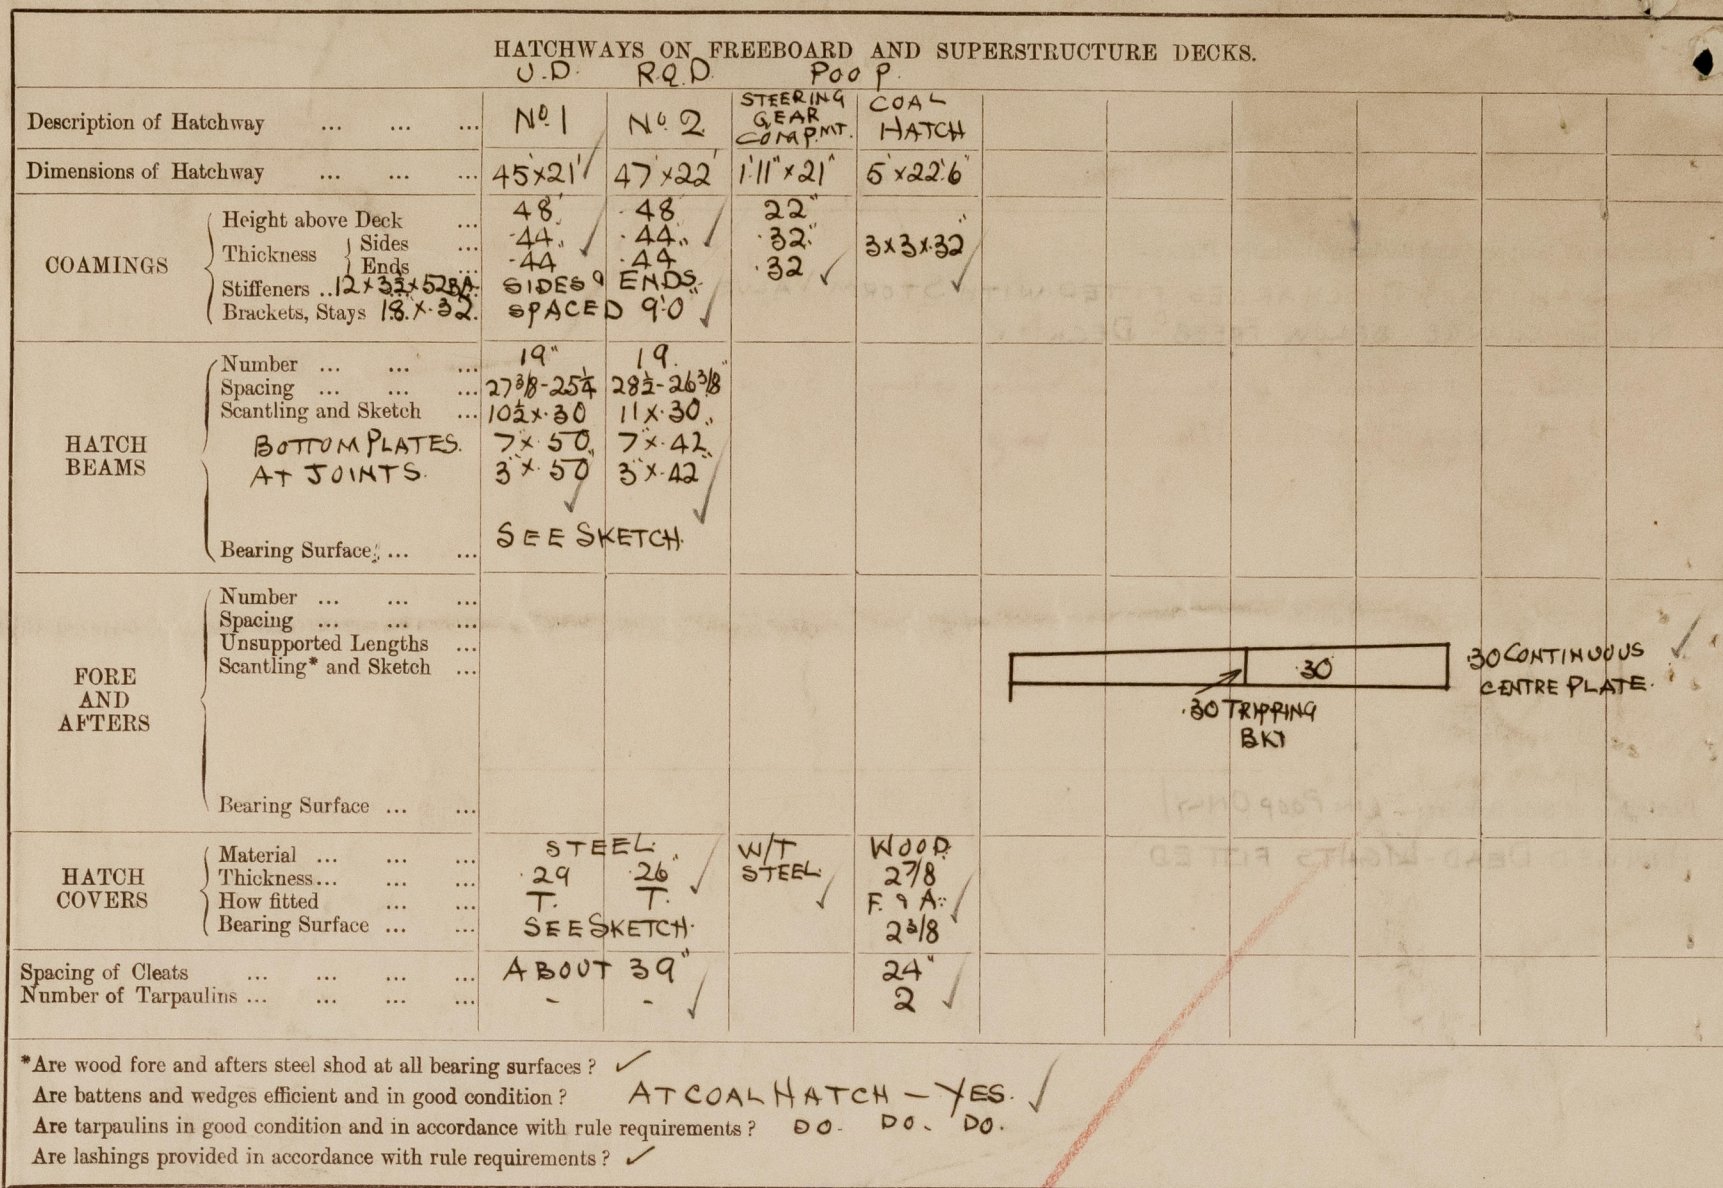 HATCHWAYS ON FREEBOARD AND SUPERSTRUCTURE DECKS.
U.D. R.Q.D. POOP.
Description of Hatchway ... ... ... No. 1 No. 2 STEERING GEAR COMPMT. COAL HATCH
Dimensions of Hatchway ... ... ... 45'×21' 47'×22' 1'11"×21" 5'×22'6"
COAMINGS
Height above Deck ... 48" 48 22"
Thickness Sides ... .44" .44" .32" 3×3×.32"
Ends ... .44 .44 .32
Stiffeners .. 12×3½×.52 B.A. SIDES & ENDS.
Brackets, Stays 18.×.32. SPACED 9'0
HATCH BEAMS
Number ... ... ... 19" 19.
Spacing ... ... ... 27 3/8-25¼ 28½-26 3/8"
Scantling and Sketch ... 10½×.30 11×.30"
BOTTOM PLATES. 7"×.50" 7"×.42"
AT JOINTS. 3"×.50 3"×.42
Bearing Surface ... ... SEE SKETCH.
FORE AND AFTERS
Number ... ... ...
Spacing ... ... ...
Unsupported Lengths ...
Scantling* and Sketch ...
.30 .30 CONTINUOUS
CENTRE PLATE.
.30 TRIPPING
BKT
Bearing Surface ... ...
HATCH COVERS
Material ... ... ... STEEL. W/T STEEL. WOOD.
Thickness... ... ... .29 .26" 2 7/8
How fitted ... ... T. T. F. & A.
Bearing Surface ... ... SEE SKETCH. 2 3/8
Spacing of Cleats ... ... ... ... ABOUT 39" 24"
Number of Tarpaulins ... ... ... ... - - 2
*Are wood fore and afters steel shod at all bearing surfaces ? ✓
Are battens and wedges efficient and in good condition ? AT COAL HATCH — YES.
Are tarpaulins in good condition and in accordance with rule requirements ? DO. DO. DO.
Are lashings provided in accordance with rule requirements ? ✓